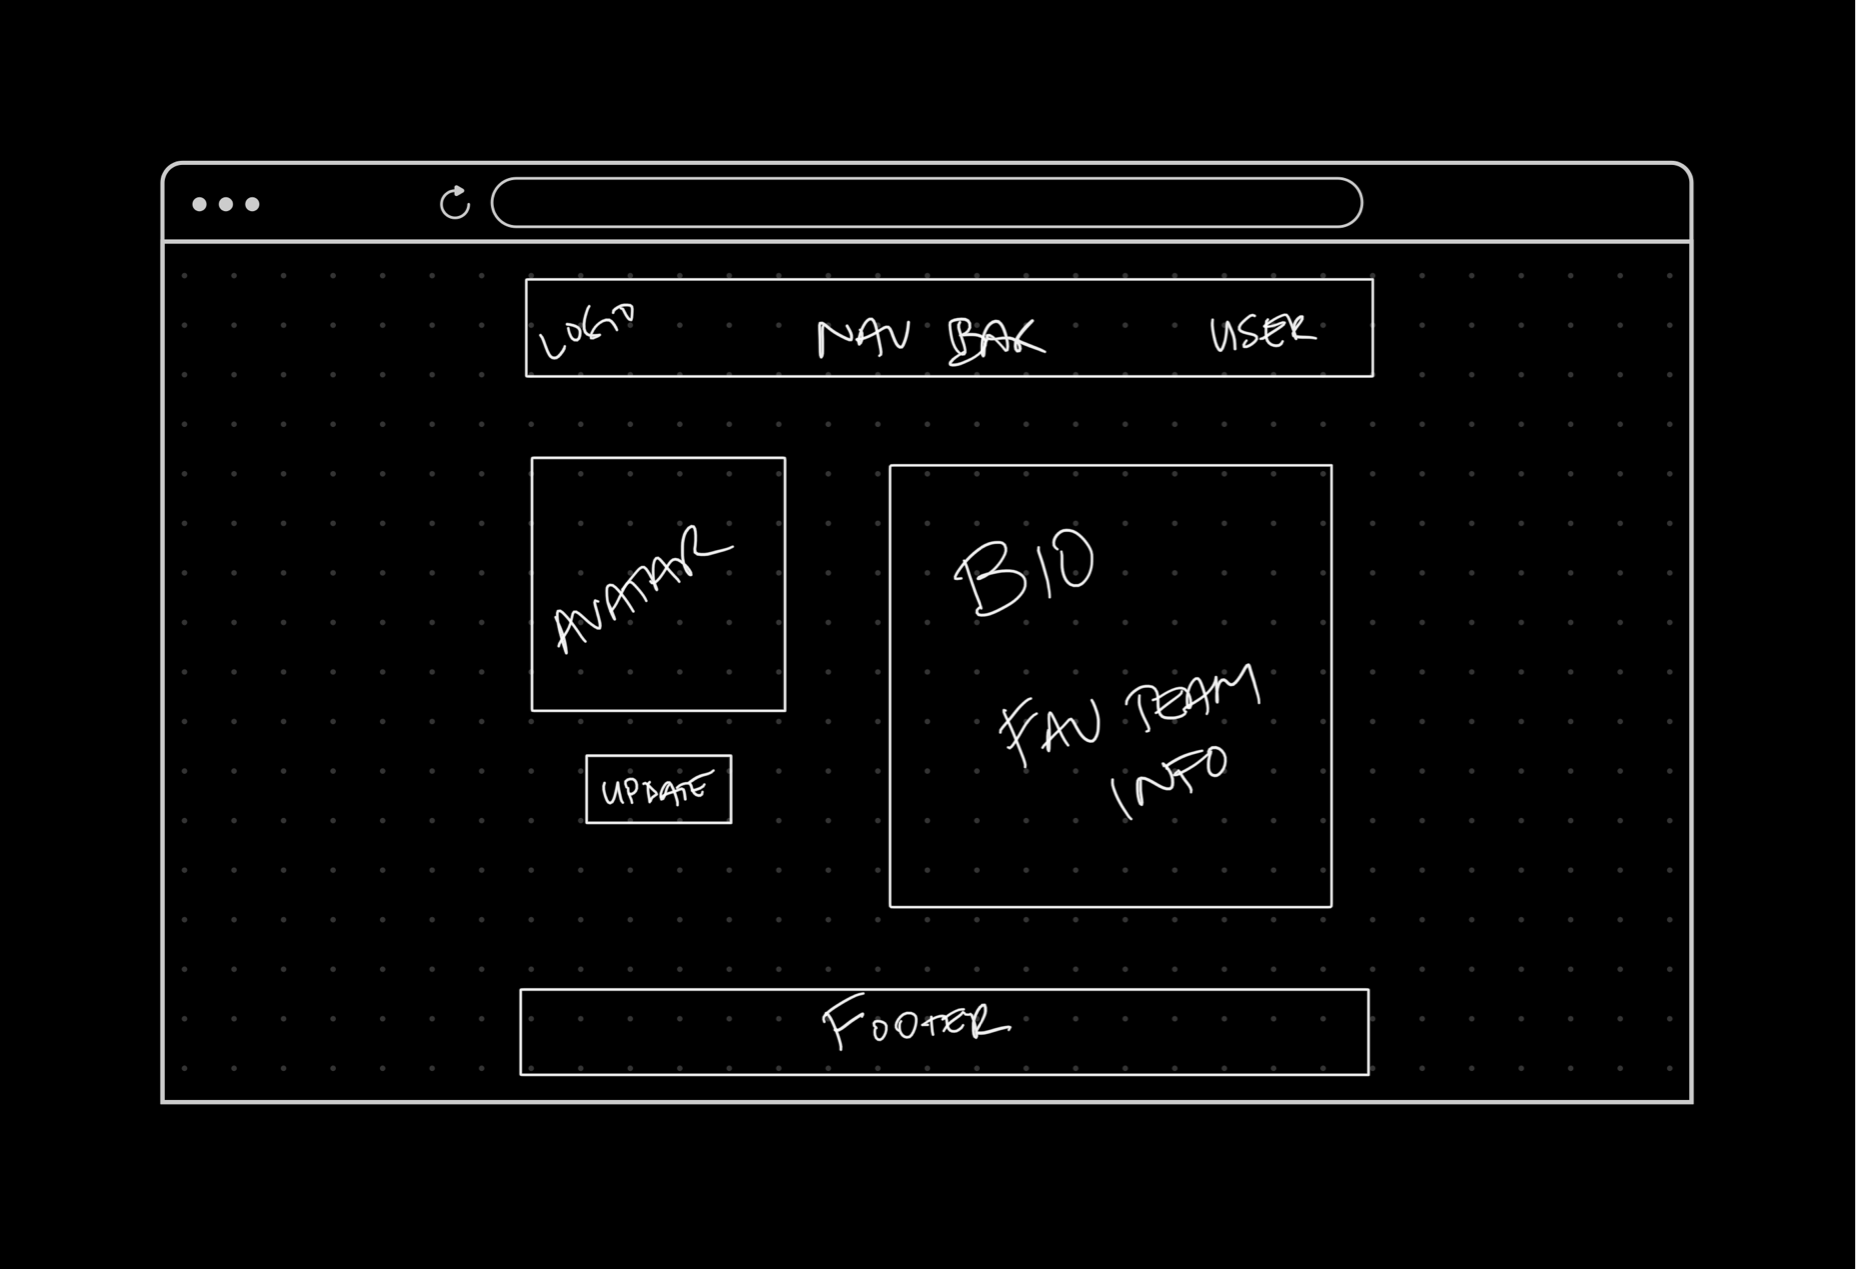 LOGO
NAV BAR
USER
AVATAR
UPDATE
BIO
FAV TEAM
INFO
FOOTER